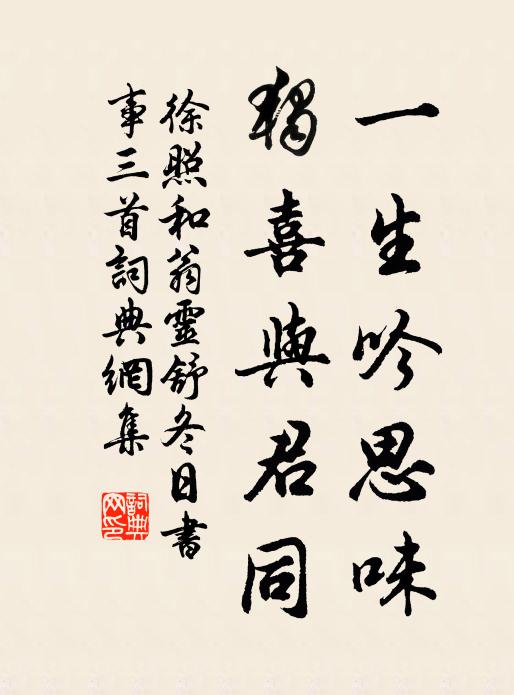 一生吟思味
獨喜與君同
徐照和翁靈舒冬日書
事三首詞典網集
詞典
网印